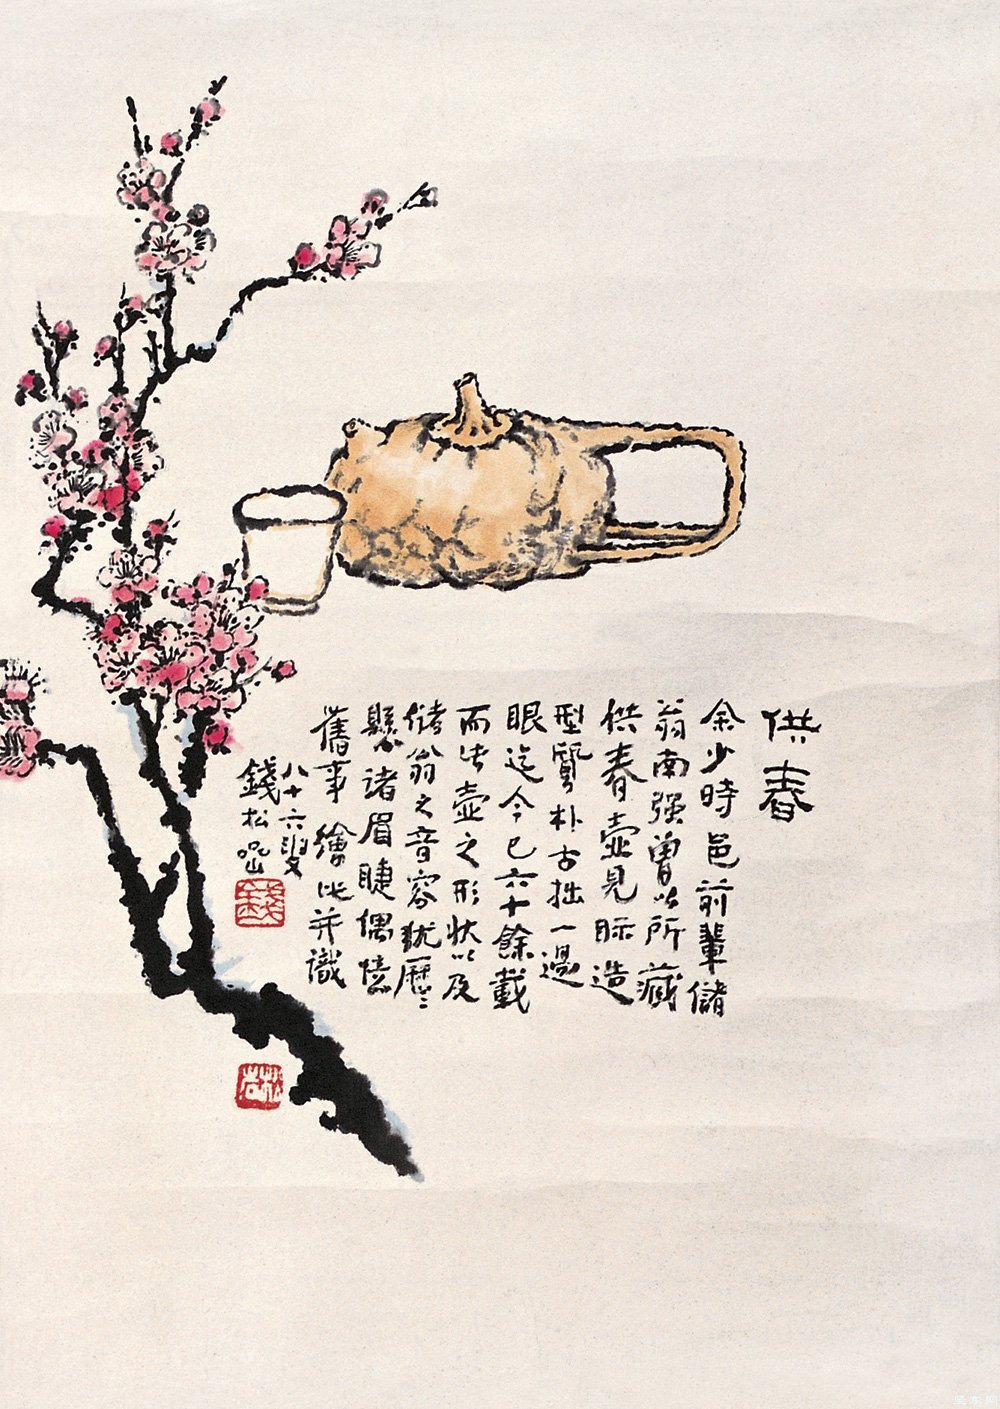 供春
余少時邑前輩儲
翁南强曾以所藏
供春壺見际造
型質朴古拙一過
眼迄今已六十餘載
而此壺之形狀以及
儲翁之音容犹歷〻
懸诸眉睫偶憶
舊事繪此并識
八十六叟
錢松喦
錢
松喦